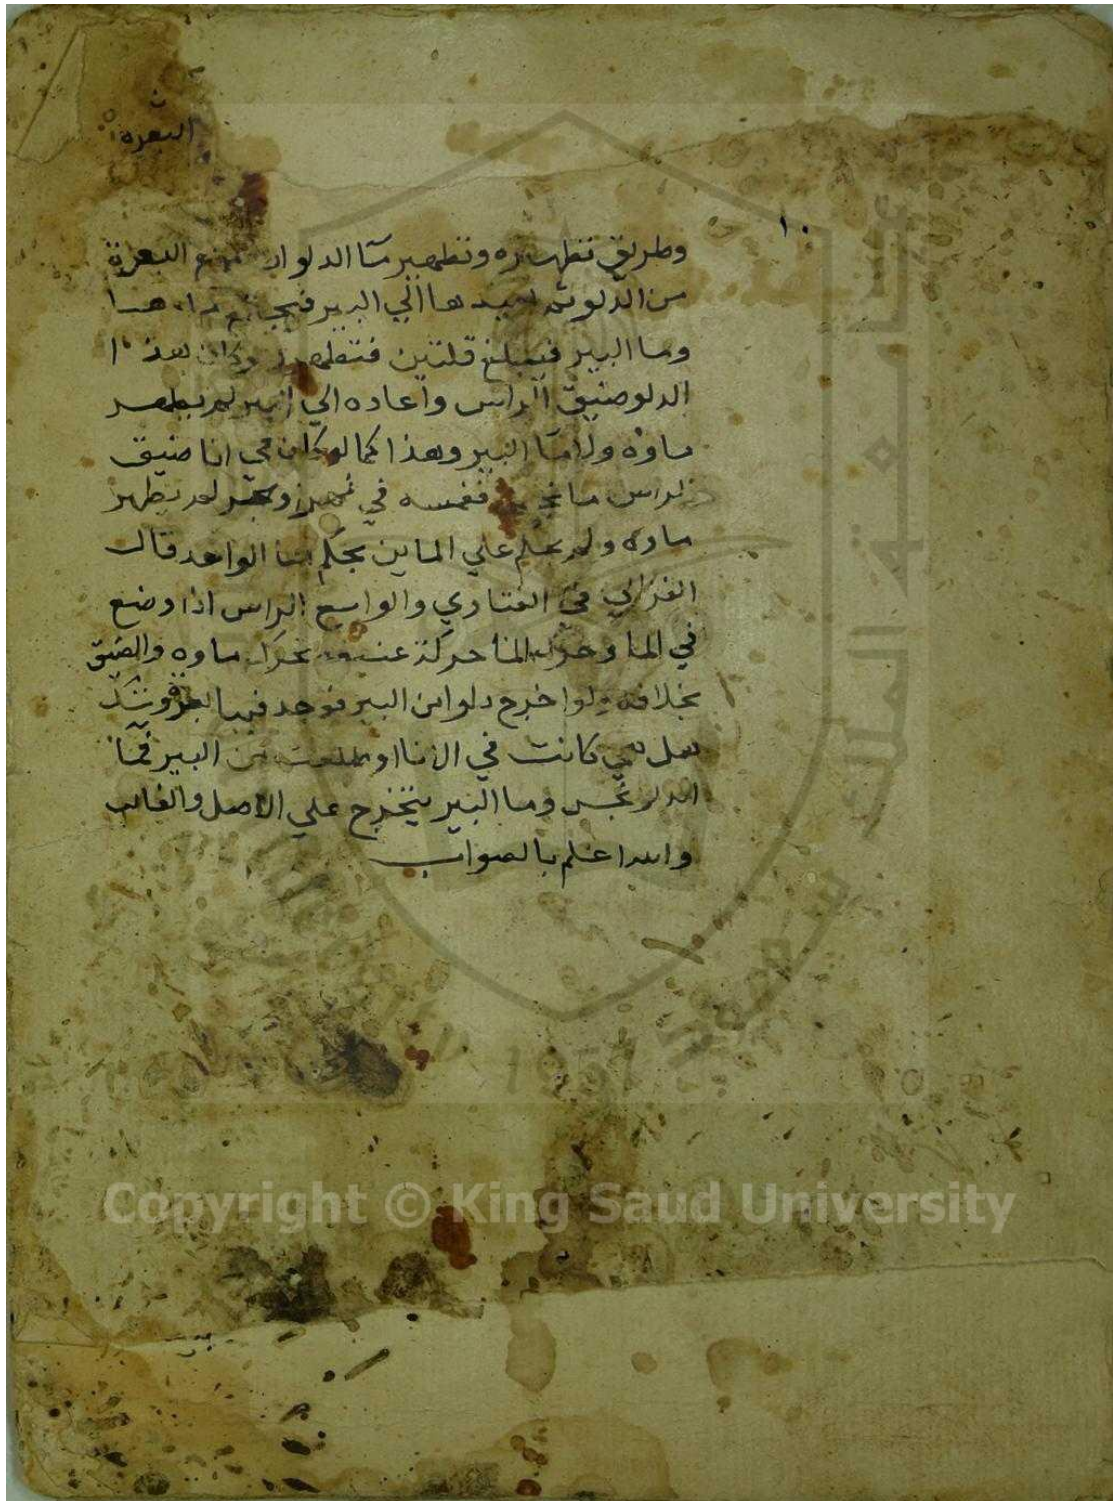 البعرة
١٠
وطريق تطهيره وتطهير مآ الدلو ان البعرة
من الدلو ثم يعيدها الي البير هدا
وما البير فيبلغ قلتين
الدلو ضيق الراس واعاده الي البير لم يطهر
ماوه ولا مآ البير وهذا كما لو كان في انا ضيق
الراس ما نجس فغمسه في لم يطهر
ماوه ولم يحكم علي الماين بحكم الما الواحد قال
الغزالي في الفتاوي والواسع الراس اذا وضع
في الما وحرك الما حركة عنيفه تحرك ماوه والضيق
بخلافه ولو اخرج دلوا من البير فوجد فيها بعرة وشك
هل هي كانت في الانا او طلعت من البير فمآ
الدلو نجس وما البير يتخرج علي الاصل والغالب
والله اعلم بالصواب
Copyright © King Saud University
جامعة الملك سعود
1957